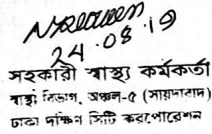 24.08.19
সহকারী স্বাস্থ্য কর্মকর্তা
স্বাস্থ্য বিভাগ, অঞ্চল-৫ (সায়দাবাদ)
ঢাকা দক্ষিণ সিটি কর্পোরেশন